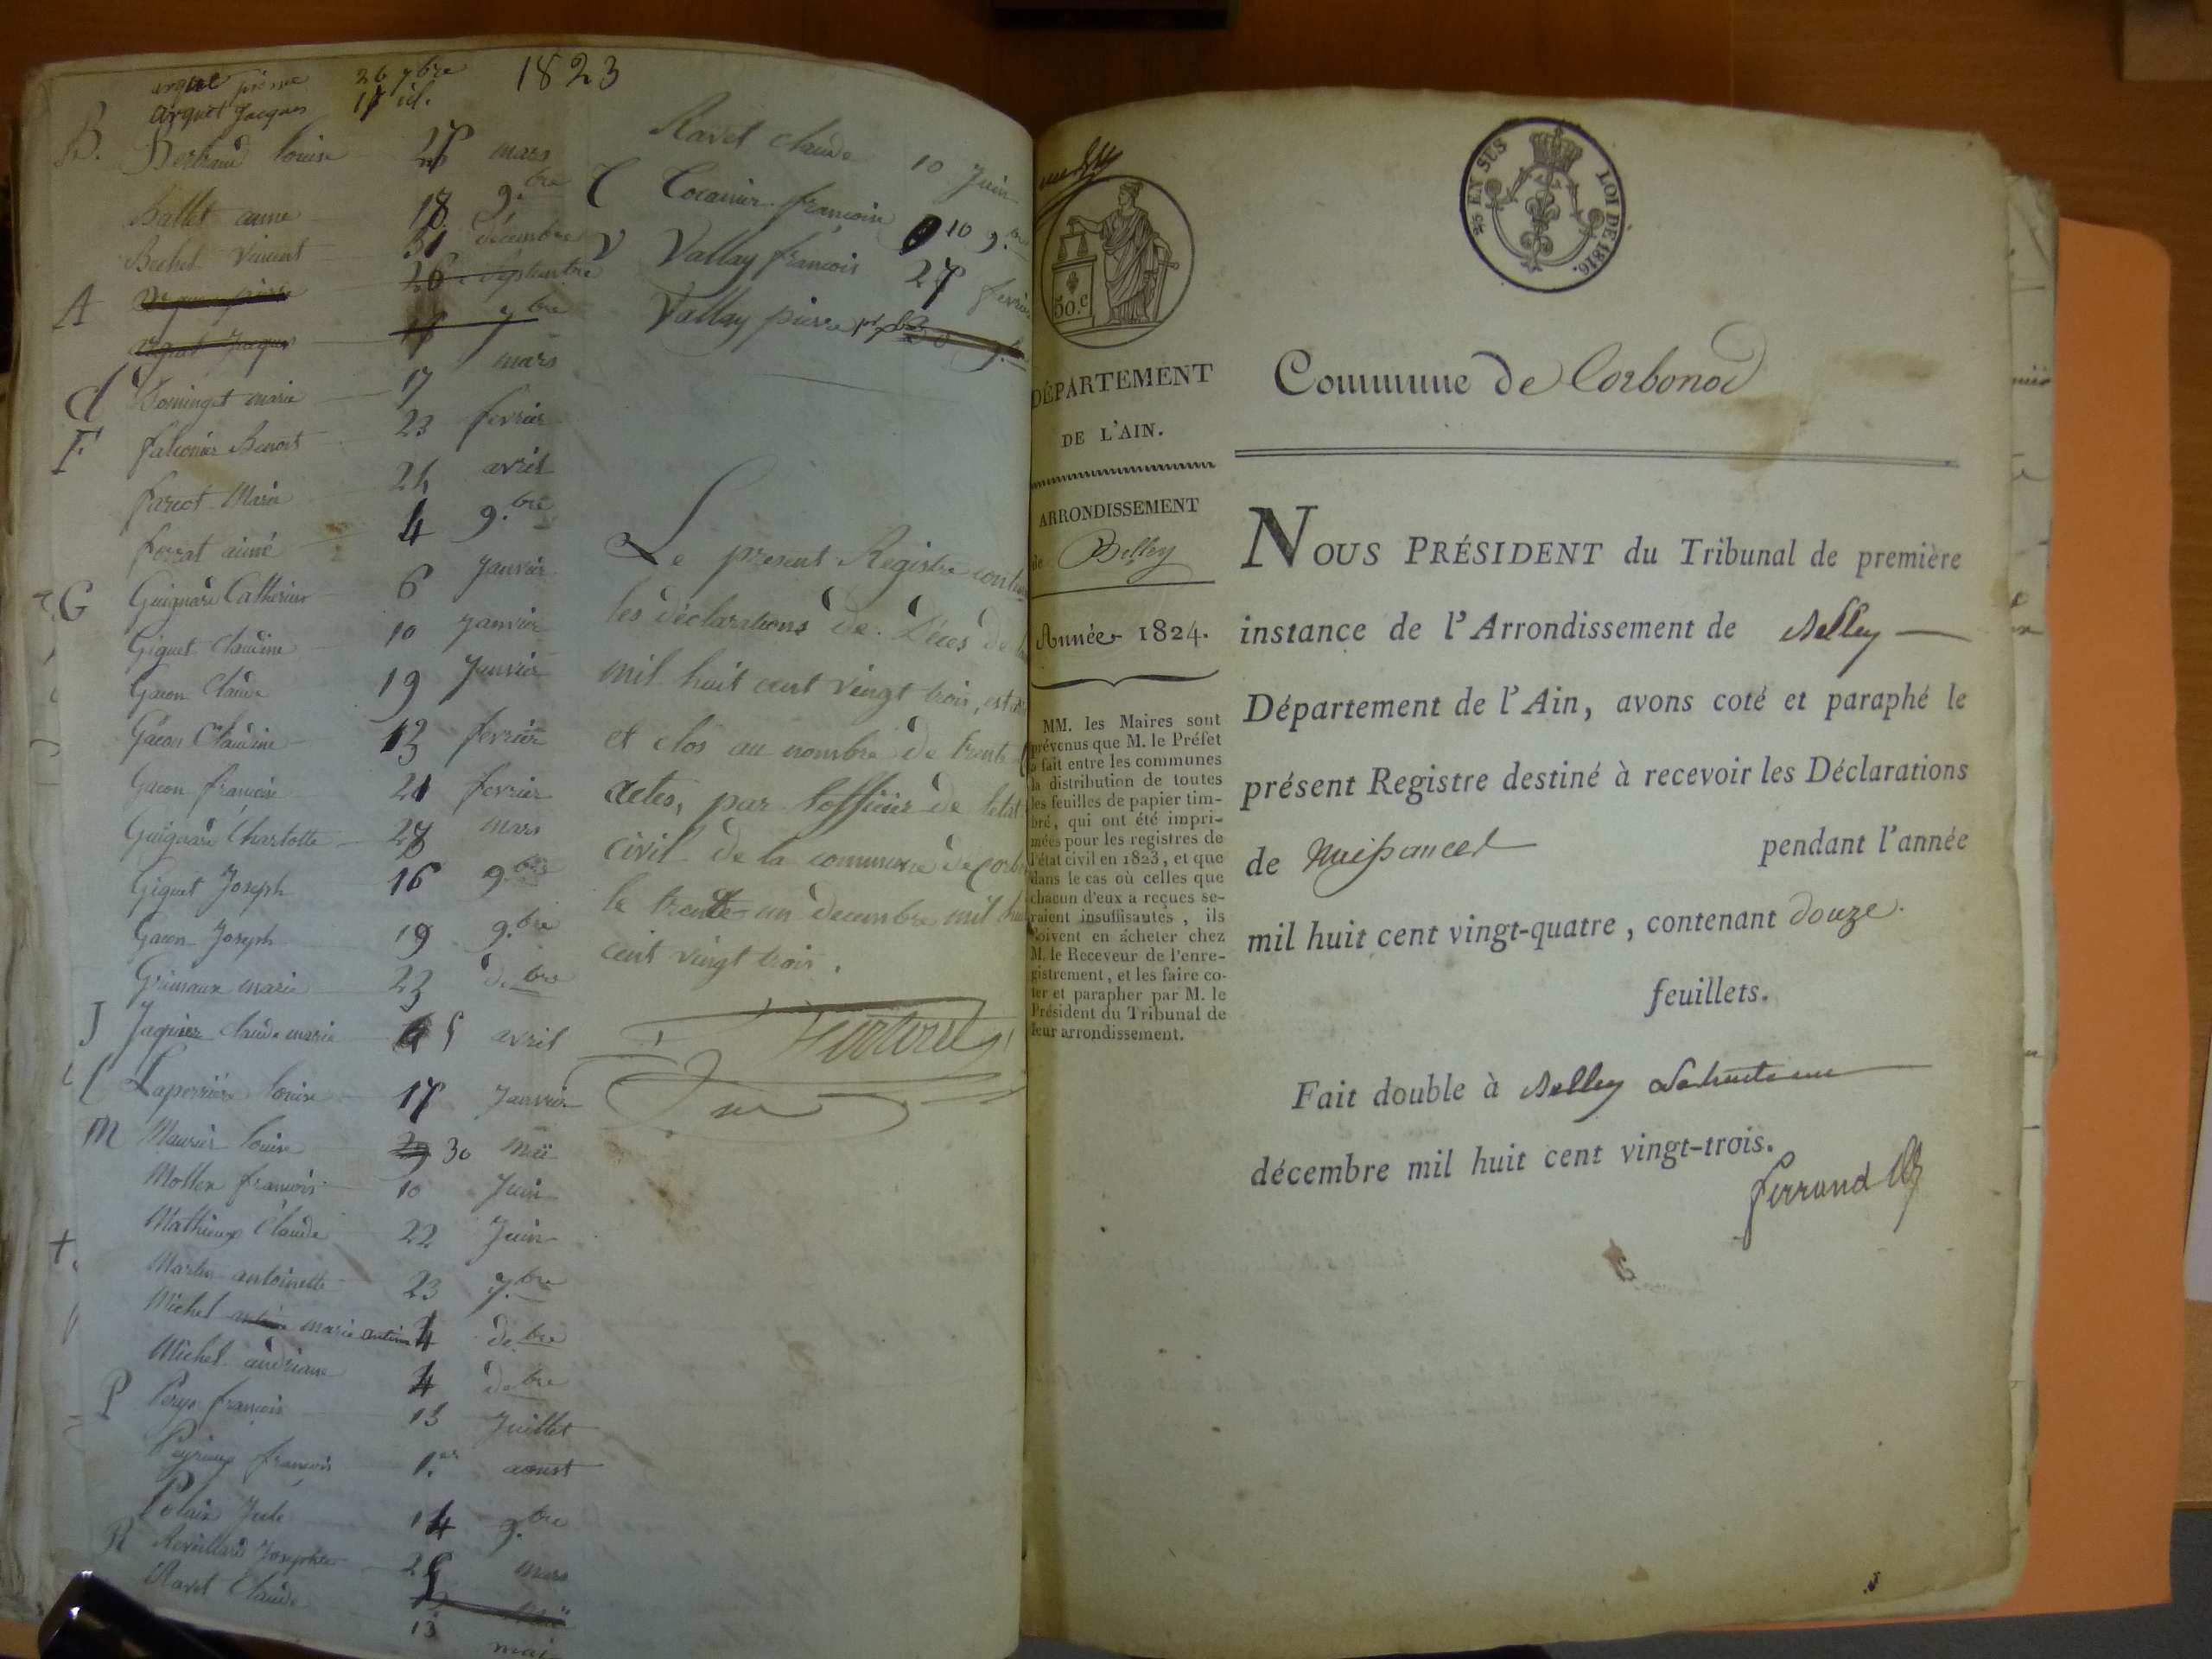 1823
arque pierre 26 7bre
arquet Jacques 17 id.
B. Bertrand louise 27 mars
Ballet anne 18 9.bre
Bechet Vincent 31 décembre
A 26 Septembre
arquet Jacques 7bre
d Dominget marie 17 mars
F falconier Benoit 23 fevrier
fareot Marie 24 avril
forrat aimé 4 9.bre
G Guignard Catherine 6 Janvier
Giguet claudine 10 Janvier
Gacon Claude 19 Janvier
Gacon Claudine 13 fevrier
Gacon francoise 21 fevrier
Guignard Charlotte 27 mars
Giguet Joseph 16 9.bre
Gacon Joseph 19 9.bre
Grimaux marie 23 d.bre
J Jaquier Claude marie 5 avril
L Laperrière louise 17 Janvier
M Maurier louise 29 30 Maï
Mollex francois 10 Juin
Mathieux Claude 22 Juin
Martin antoinette 23 7.bre
Michel antoine marie antoine 4 de.bre
Michel andrianne 4 de.bre
P Perys francois 13 Juillet
Peyrieux francois 1.er aoust
Polair Jule 14 9.bre
R Revillard Josephte 25 mars
Ravet Claude
13 mai
Ravet claude 10 Juin
C Cocainier francoise 10 9.bre
V Vallay francois 27 fevrier
Vallay pierre
Le present Registre
les déclarations de Décès de
mil huit cent vingt trois, est
et clos au nombre de trente
actes, par lofficier de letat
civil de la commune de
le trente un decembre mil
cent vingt trois.
⅖ EN SUS
LOI DE 1816.
50.c
DÉPARTEMENT
DE L'AIN.
ARRONDISSEMENT
de Belley
Année 1824.
MM. les Maires sont
prévenus que M. le Préfet
a fait entre les communes
la distribution de toutes
les feuilles de papier tim-
bré, qui ont été impri-
mées pour les registres de
l'état civil en 1823, et que
dans le cas où celles que
chacun d'eux a reçues se-
raient insuffisantes, ils
doivent en acheter chez
M. le Receveur de l'enre-
gistrement, et les faire co-
ter et parapher par M. le
Président du Tribunal de
leur arrondissement.
Commune de Corbonod
NOUS PRÉSIDENT du Tribunal de première
instance de l'Arrondissement de Belley
Département de l'Ain, avons coté et paraphé le
présent Registre destiné à recevoir les Déclarations
de Naissances pendant l'année
mil huit cent vingt-quatre, contenant douze
feuillets.
Fait double à Belley le trente un
décembre mil huit cent vingt-trois.
ferrand